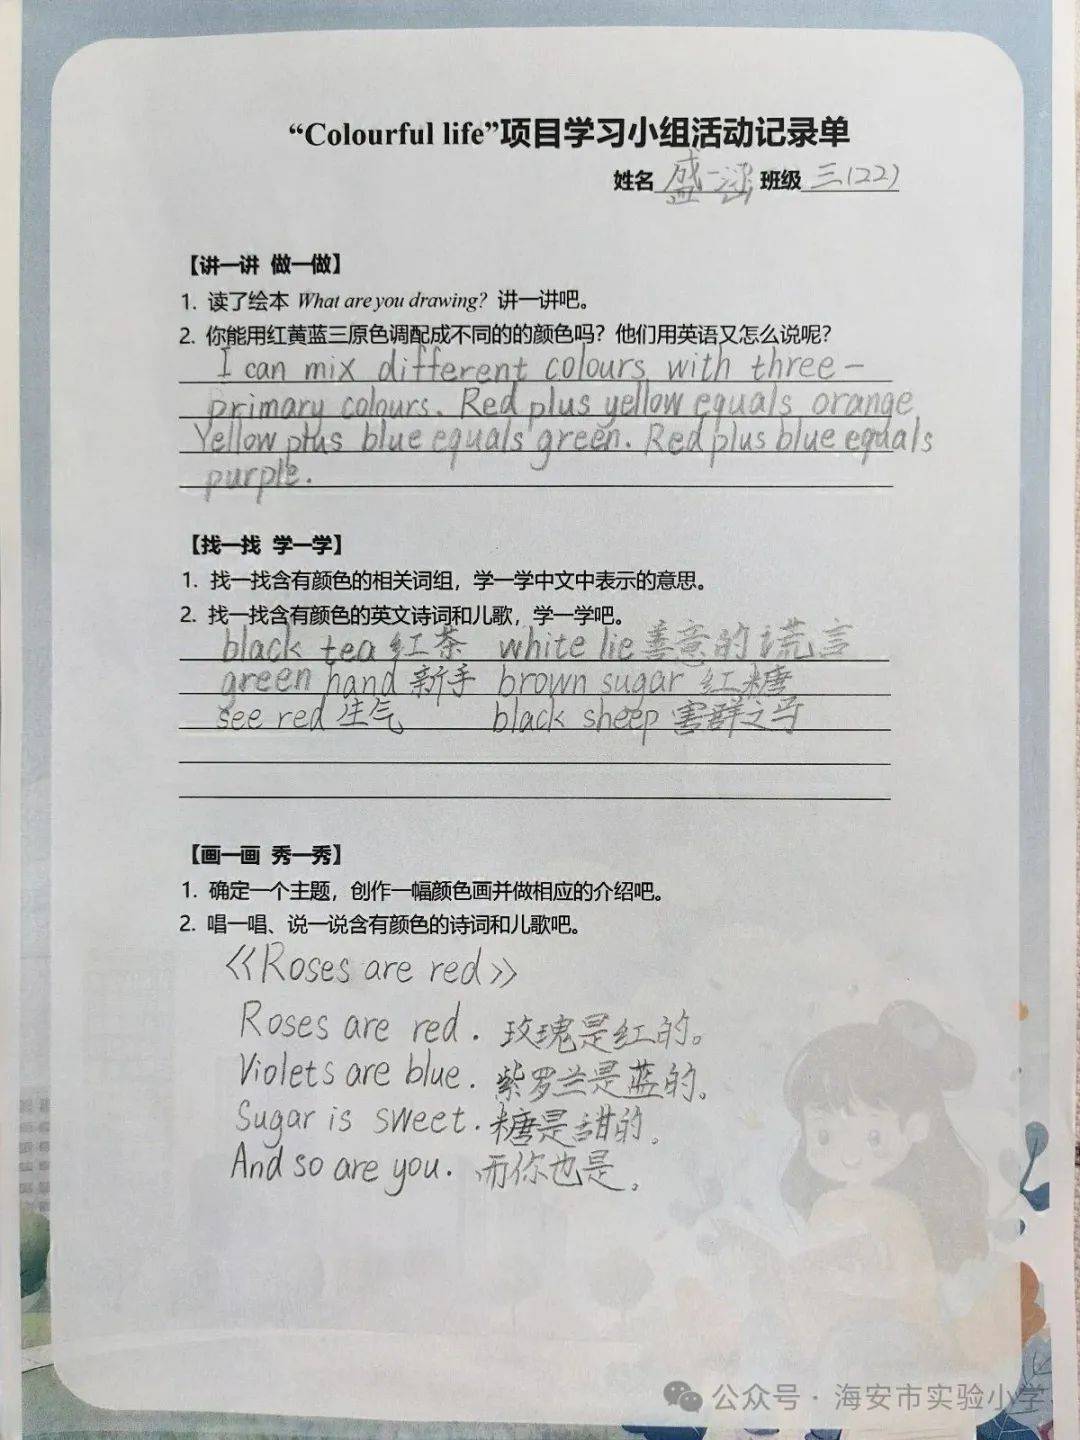 “Colourful life”项目学习小组活动记录单
姓名 盛一涵 班级 三(22)
【讲一讲 做一做】
1. 读了绘本 What are you drawing? 讲一讲吧。
2. 你能用红黄蓝三原色调配成不同的的颜色吗？他们用英语又怎么说呢？
I can mix different colours with three-
primary colours. Red plus yellow equals orange
Yellow plus blue equals green. Red plus blue equals
purple.
【找一找 学一学】
1. 找一找含有颜色的相关词组，学一学中文中表示的意思。
2. 找一找含有颜色的英文诗词和儿歌，学一学吧。
black tea 红茶 white lie 善意的谎言
green hand 新手 brown sugar 红糖
see red 生气 black sheep 害群之马
【画一画 秀一秀】
1. 确定一个主题，创作一幅颜色画并做相应的介绍吧。
2. 唱一唱、说一说含有颜色的诗词和儿歌吧。
《Roses are red》
Roses are red. 玫瑰是红的。
Violets are blue. 紫罗兰是蓝的。
Sugar is sweet. 糖是甜的。
And so are you. 而你也是。
公众号 · 海安市实验小学